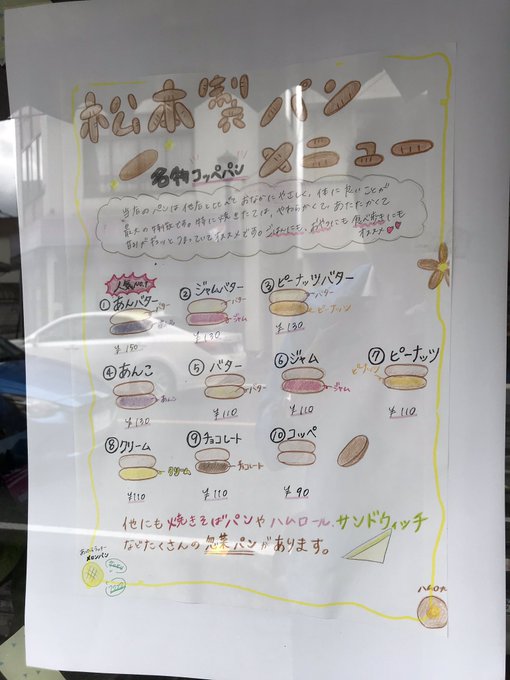 松本製パン
メニュー
名物コッペパン
当店のパンは他店と比べておなかにやさしく、体に良いことが
最大の特徴です。特に焼きたては、やわらかくて、あたたかくて
オススメです。ごはんにも、おやつにも食べ歩きにも
オススメ
人気No.1
①あんバター
バター
あんこ
¥150
②ジャムバター
バター
ジャム
¥130
③ピーナッツバター
バター
ピーナッツ
¥130
④あんこ
あんこ
¥130
⑤バター
バター
¥110
⑥ジャム
ジャム
¥110
⑦ピーナッツ
ピーナッツ
¥110
⑧クリーム
クリーム
¥110
⑨チョコレート
チョコレート
¥110
⑩コッペ
¥90
他にも焼きそばパンやハムロール、サンドウィッチ
などたくさんの惣菜パンがあります。
メロンパン
ハムロール